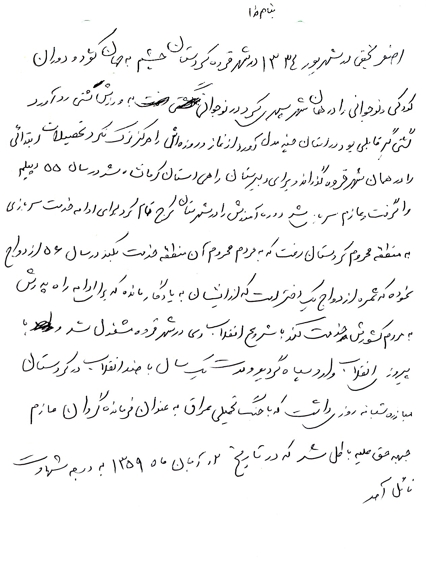 بنام خدا
اصغر نجفی در شهریور ۱۳۳۴ در شهر قروه کردستان چشم به جهان گشود و دوران
کودکی و نوجوانی را در همان شهر سپری کرد در نوجوانی به ورزش کشتی رو آورد
کشتی گیر قابلی بود در استان چند مدال آورد از نماز و روزه اش را هرگز ترک نکرد تحصیلات ابتدائی
را در همان شهر قروه گذراند و برای دبیرستان راهی استان کرمانشاه شد در سال ۵۵ دیپلم
را گرفت و عازم سربازی شد دوره آموزش را در شهرستان کرج تمام کرد برای ادامه خدمت سربازی
به منطقه محروم کردستان رفت که به مردم محروم آن منطقه خدمت بکند در سال ۵۶ ازدواج
نموده که ثمره ازدواج یک دختر است که از ایشان به یادگار مانده که برا ادامه راه پدرش
به مردم کشورش خدمت کند با شروع انقلاب وی در شهر قروه مشغول شد و با
پیروزی انقلاب وارد سپاه گردید و مدت یک سال با ضد انقلاب در کردستان
مبارزه شبانه روزی داشت که با جنگ تحمیلی عراق به عنوان فرمانده گردان عازم
جبهه حق علیه باطل شد که در تاریخ ۲۰ آبان ماه ۱۳۵۹ به درجه شهادت
نائل آمد